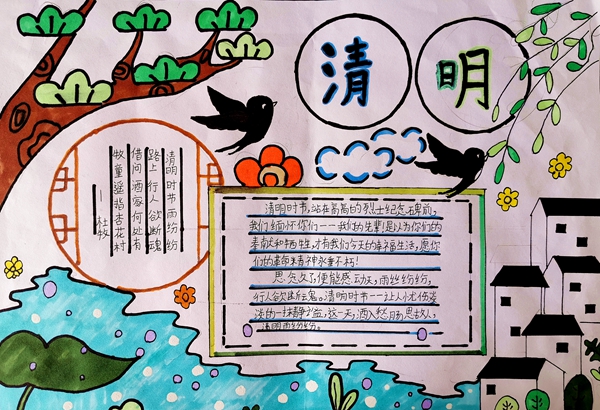 清明
清明时节雨纷纷
路上行人欲断魂
借问酒家何处有
牧童遥指杏花村
——杜牧
清明时节,站在高高的烈士纪念碑前,
我们缅怀你们——我们的先辈!是以为你们的
奉献和牺牲,才有我们今天的幸福生活,愿你
们的革命精神永垂不朽!
思念久了便能感动天,雨丝纷纷,
行人欲断云鬼。清明时节——让人忧伤
淡的一抹静谧,这一天,酒入愁肠思故人,
清明雨纷纷。